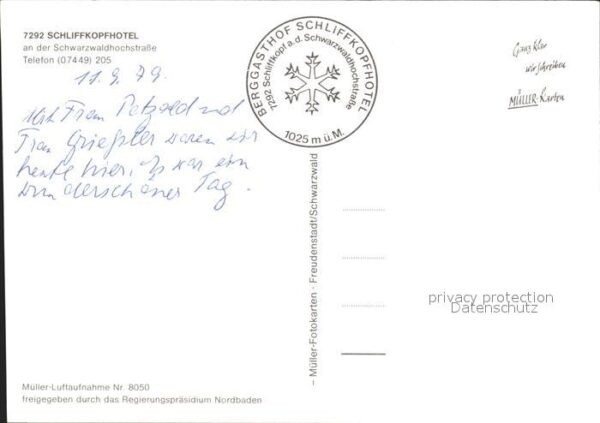 7292 SCHLIFFKOPFHOTEL
an der Schwarzwaldhochstraße
Telefon (07449) 205
11.9.79.
Mit Frau Petzold und
Frau Grießler waren wir
heute hier, es war ein
wunderschöner Tag.
BERGGASTHOF SCHLIFFKOPFHOTEL
7292 Schliffkopf a.d. Schwarzwaldhochstraße
1025 m ü.M.
Ganz klar
wir schreiben
MÜLLER-Karten
– Müller-Fotokarten · Freudenstadt/Schwarzwald
privacy protection
Datenschutz
Müller-Luftaufnahme Nr. 8050
freigegeben durch das Regierungspräsidium Nordbaden